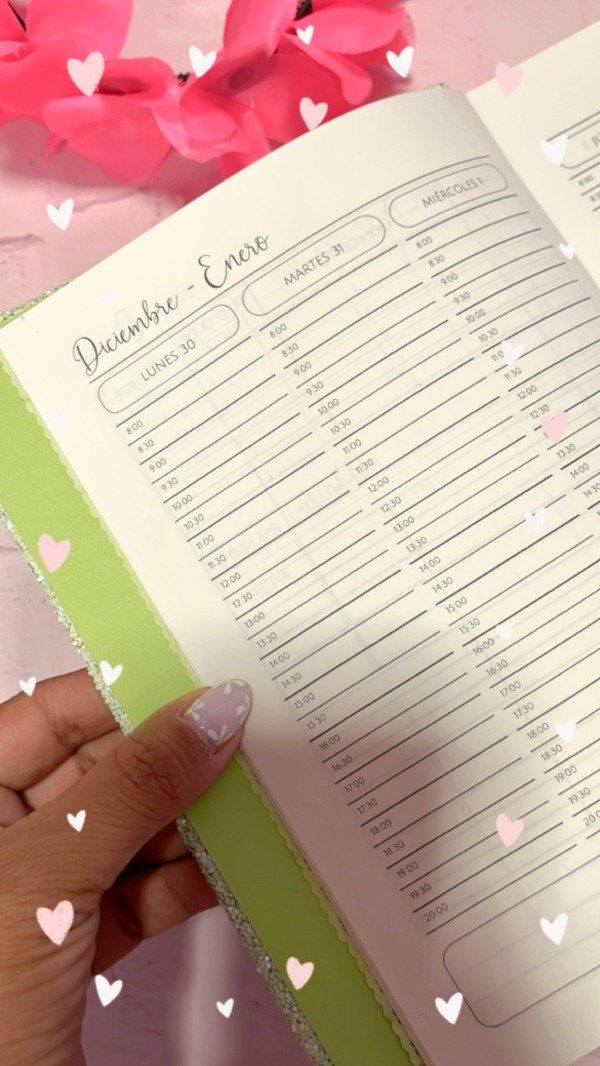 Diciembre - Enero
LUNES 30
8:00
8:30
9:00
9:30
10:00
10:30
11:00
11:30
12:00
12:30
13:00
13:30
14:00
14:30
15:00
15:30
16:00
16:30
17:00
17:30
18:00
18:30
19:00
19:30
20:00
MARTES 31
8:00
8:30
9:00
9:30
10:00
10:30
11:00
11:30
12:00
12:30
13:00
13:30
14:00
14:30
15:00
15:30
16:00
16:30
17:00
17:30
18:00
18:30
19:00
19:30
MIÉRCOLES 1
8:00
8:30
9:00
9:30
10:00
10:30
11:30
12:00
12:30
13:30
14:00
14:30
8:00